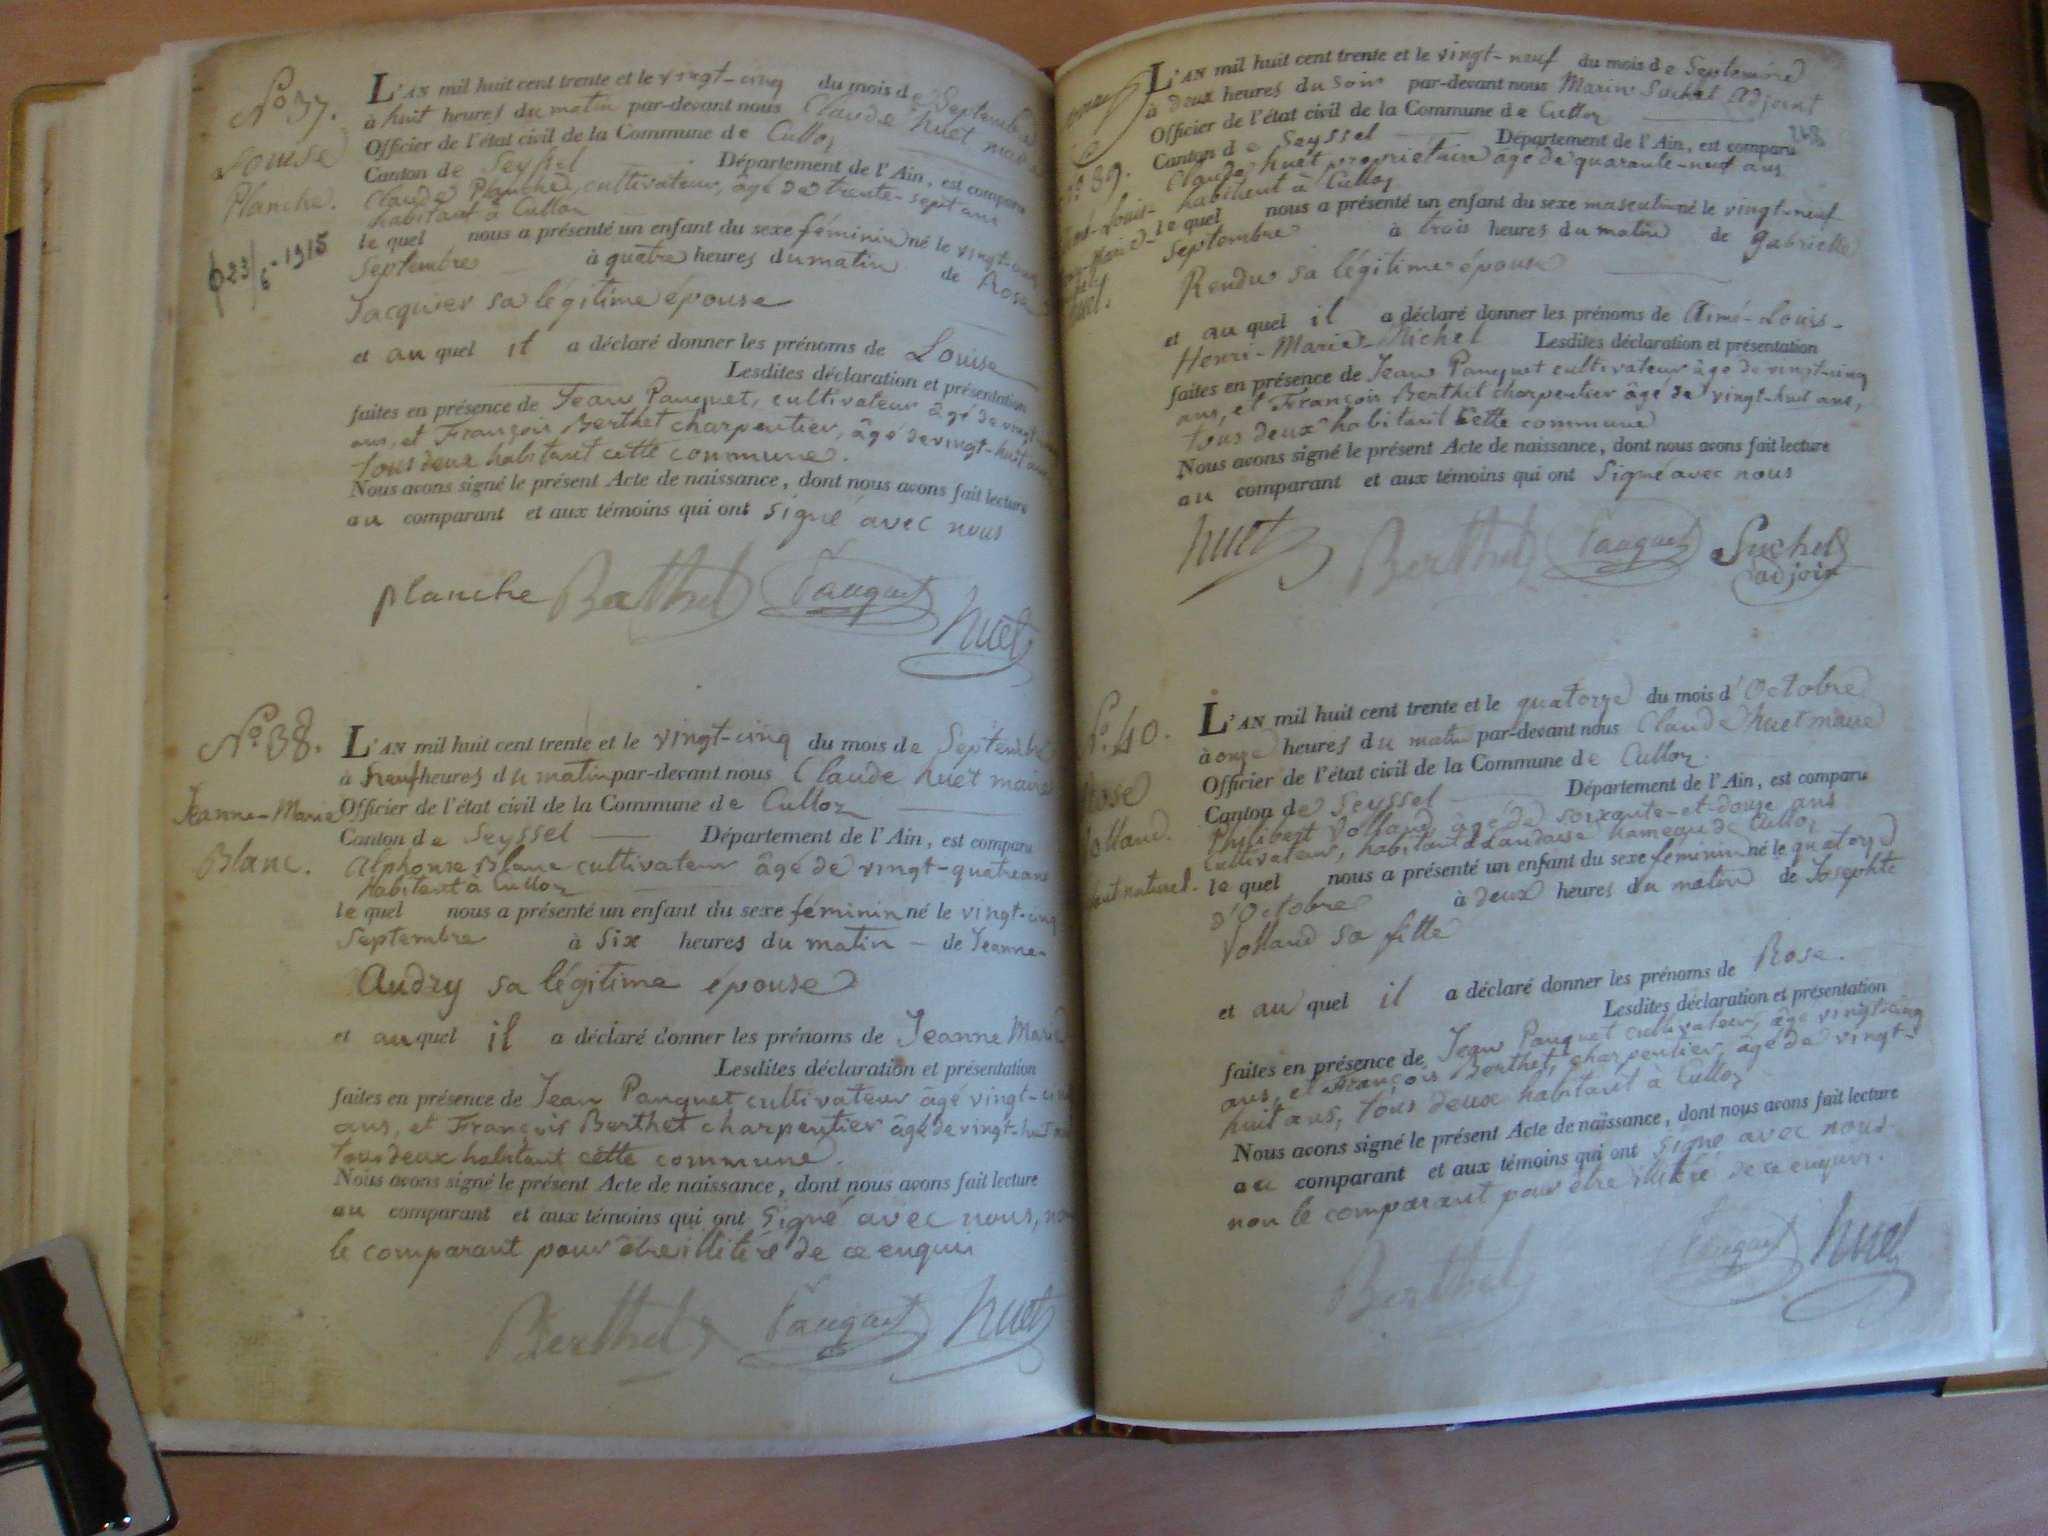 N° 37.
Louise
Planche.
23/6-1915
L'AN mil huit cent trente et le vingt-cinq du mois de Septembre
à huit heures du matin par-devant nous Claude huet maire
Officier de l'état civil de la Commune de Culloz
Canton de Seyssel Département de l'Ain, est comparu
Claude Planche, cultivateur, âgé de trente-sept ans
habitant à Culloz
le quel nous a présenté un enfant du sexe féminin né le vingt-cinq
Septembre à quatre heures du matin de Rose
Jacquier sa légitime épouse
et au quel il a déclaré donner les prénoms de Louise
Lesdites déclaration et présentation
faites en présence de Jean Pauquet, cultivateur âgé de vingt-cinq
ans, et François Berthet charpentier, âgé de vingt-huit ans
tous deux habitant cette commune.
Nous avons signé le présent Acte de naissance, dont nous avons fait lecture
au comparant et aux témoins qui ont signé avec nous
planche Berthet Pauquet huet
N° 38.
Jeanne-Marie
Blanc.
L'AN mil huit cent trente et le vingt-cinq du mois de Septembre
à neuf heures du matin par-devant nous Claude huet maire
Officier de l'état civil de la Commune de Culloz
Canton de Seyssel Département de l'Ain, est comparu
Alphonse Blanc cultivateur âgé de vingt-quatre ans
habitant à Culloz
le quel nous a présenté un enfant du sexe féminin né le vingt-cinq
Septembre à six heures du matin de Jeanne-
Audry sa légitime épouse
et au quel il a déclaré donner les prénoms de Jeanne Marie
Lesdites déclaration et présentation
faites en présence de Jean Pauquet cultivateur âgé vingt-cinq
ans, et François Berthet charpentier âgé de vingt-huit ans
tous deux habitant cette commune.
Nous avons signé le présent Acte de naissance, dont nous avons fait lecture
au comparant et aux témoins qui ont signé avec nous, non
le comparant pour être illitéré de ce enquis
Berthet Pauquet huet
L'AN mil huit cent trente et le vingt-neuf du mois de Septembre
à deux heures du soir par-devant nous Marin Suchet adjoint
Officier de l'état civil de la Commune de Culloz
Canton de Seyssel Département de l'Ain, est comparu
N° 39.
Claude huet propriétaire âgé de quarante-neuf ans
habitant à Culloz
le quel nous a présenté un enfant du sexe masculin né le vingt-neuf
Septembre à trois heures du matin de gabrielle
Rendu sa légitime épouse
et au quel il a déclaré donner les prénoms de Aimé-Louis-
Henri-Marie-Michel Lesdites déclaration et présentation
faites en présence de Jean Pauquet cultivateur âgé de vingt-cinq
ans, et François Berthet charpentier âgé de vingt-huit ans,
tous deux habitant cette commune
Nous avons signé le présent Acte de naissance, dont nous avons fait lecture
au comparant et aux témoins qui ont signé avec nous
huet Berthet Pauquet Suchet
adjoint
N° 40.
Rose
Volland.
enfant naturel.
L'AN mil huit cent trente et le quatorze du mois d'Octobre
à onze heures du matin par-devant nous Claude huet maire
Officier de l'état civil de la Commune de Culloz
Canton de Seyssel Département de l'Ain, est comparu
Philibert Volland âgé de soixante-et-douze ans
cultivateur, habitant à Landaise hameau de Culloz
le quel nous a présenté un enfant du sexe féminin né le quatorze
d'Octobre à deux heures du matin de Josephte
Volland sa fille
et au quel il a déclaré donner les prénoms de Rose.
Lesdites déclaration et présentation
faites en présence de Jean Pauquet cultivateur, âgé vingt-cinq
ans, et François Berthet, charpentier, âgé de vingt-
huit ans, tous deux habitant à Culloz
Nous avons signé le présent Acte de naissance, dont nous avons fait lecture
au comparant et aux témoins qui ont signé avec nous
non le comparant pour être illitéré de ce enquis.
Berthet Pauquet huet